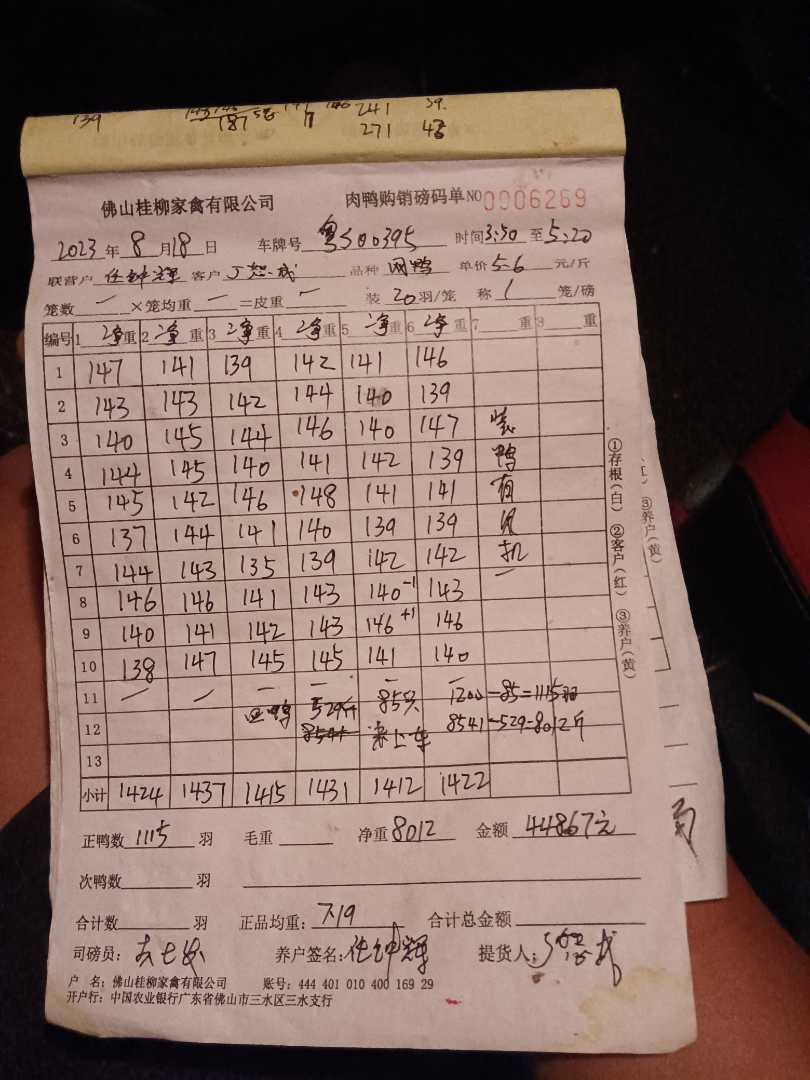 139 187 58 241 39
271 48
佛山桂柳家禽有限公司 肉鸭购销磅码单 NO 0006269
2023年8月18日 车牌号 粤S00395 时间3:30至5:20
联营户 任钟辉 客户 品种 网鸭 单价5.6元/斤
笼数 一 ×笼均重 一 =皮重 一 装20羽/笼 称1笼/磅
编号 1 净重 2 净重 3 净重 4 净重 5 净重 6 净重 7 重 8 重
1 147 141 139 142 141 146
2 143 143 142 144 140 139
3 140 145 144 146 140 147 装
4 144 145 140 141 142 139 鸭
5 145 142 146 148 141 141 有
6 137 144 141 140 139 139 风
7 144 143 135 139 142 142 机
8 146 146 141 143 140-1 143 一
9 140 141 142 143 146+1 146
10 138 147 145 145 141 140
11 一 一 一 一 一 一
回鸭 529斤 85只 1200-85=1115羽
12 8541 未上车 8541-529=8012斤
13
小计 1424 1437 1415 1431 1412 1422
正鸭数 1115 羽 毛重 净重8012 金额 44867元
次鸭数 羽
合计数 羽 正品均重: 7.19 合计总金额
司磅员: 养户签名: 任钟辉 提货人:
户 名: 佛山桂柳家禽有限公司 账号: 444 401 010 400 169 29
开户行: 中国农业银行广东省佛山市三水区三水支行
①存根(白) ②客户(红) ③养户(黄)
③养户(黄)